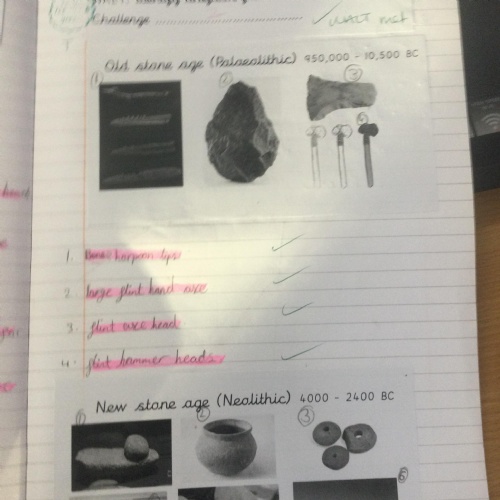 Challenge
WALT met
Old stone age (Palaeolithic) 950,000 - 10,500 BC
1 2 3
1. Bone harpoon tips
2. large flint hand axe
3. flint axe head
4. flint hammer heads
New stone age (Neolithic) 4000 - 2400 BC
1 2 3